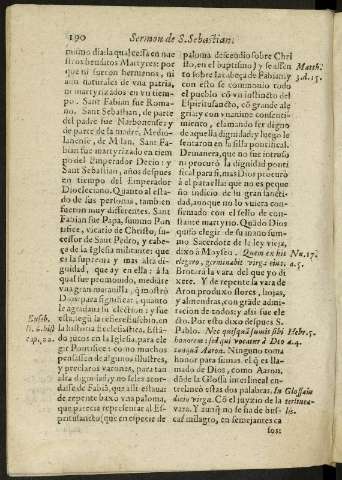 190 Sermon de S. Sebastian.
mismo dia: la qual cessa en nae
stros benditos Martyres: por
que ni fueron hermanos, ni
aun naturales de vna patria,
ni martyrizados en vn tiem-
po. Sant Fabian fue Roma-
no. Sant Sebastian, de parte
del padre fue Narbonense: y
de parte de la madre, Medio-
lanense, de Milan. Sant Fa-
bian fue martyrizado en tiem
po del Emperador Decio: y
Sant Sebastian, años despues
en tiempo del Emperador
Diocleciono. Quanto al esta-
do de sus personas, tambien
fueron muy differentes. Sant
Fabian fue Papa, summo Pon
tifice, vicario de Christo, su-
cessor de Sant Pedro, y cabe-
ça de la Yglesia militante: que
es la suprema y mas alta di-
gnidad, que ay en ella: à la
qual fue promouido, mediäte
vna gran reuelacion, q̃ mostrò
Dios para significar, quanto
le agradaua su election: y fue
esta, segũ la refiere Eusebio, en
la historia Ecclesiastica. Està-
do jutos en la Yglesia, para ele
gir Pontifice: como muchos
pensassen de algunos illustres,
y preclaros varones, para tan
alta dignidad, y no se les acor-
dasse de Fabiã, que alli estaua:
de repente baxo vna paloma,
que parecia representar al Es-
piritusancto (que en especie de
Euseb.
li. 6. hist
cap. 22.
paloma descendio sobre Chri
sto, en el baptismo) y se assen
to sobre la cabeça de Fabian, y
con esto se commouio todo
el pueblo cõ vn instincto del
Espiritusancto, cõ grande ale
gria y con vnanime consenti-
miento, clamando ser digno
de aquella dignidad: y luego le
sentaron en su silla pontifical.
Demanera, que no fue intruso
ni procurò la dignidad ponti
fical para si, mas Dios procurò
à el para ella: que no es peque
ño indicio de su gran sancti-
dad, aunque no lo vuiera con-
firmado con el sello de con-
stante martyrio. Quãdo Dios
quiso elegir de su mano sum-
mo Sacerdote de la ley vieja,
dixo à Moysen: Quem ex his
elegero, germinabit virga eius:
Brotarà la vara del que yo di
xere. Y de repente la vara de
Aron produxo flores, hojas,
y almendras, con grãde admi-
racion de todos: y assi fue ele
cto. Por esto dixo despues S.
Pablo. Nec quisquã sumit sibi
honorem: sed qui vocatur à Deo
tanquã Aaron. Ninguno toma
honor para si mas, el q̃ es lla-
mado de Dios, como Aaron,
dõde la Glossa interlineal en-
trelaneò estas dos palabras. In
dicio virga. Cõ el juyzio de la
vara. Y aunq̃ no se ha de bus-
car milagro, en semejantes ca
sos:
Matth.
3. d. 15.
Nu. 17.
a. 5.
Hebr. 5.
a. 4.
In Glossa in
terlinea-
li.